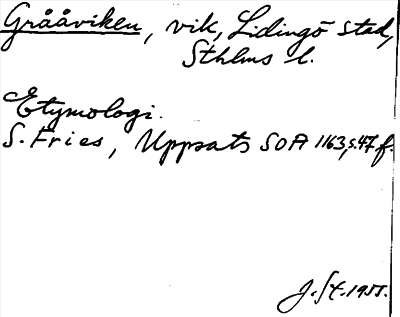 Grååviken, vik, Lidingö stad,
Sthlms l.
Etymologi.
S. Fries, Uppsats SOA 1163, s. 47 f.
J. St. 1955.